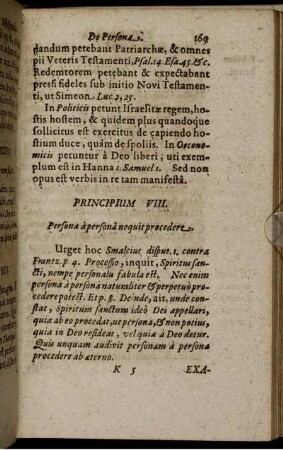 De Persona. 169
dandum petebant Patriarchæ, & omnes
pii Veteris Testamenti, Psal. 14. Esa. 45. &c.
Redemtorem petebant & expectabant
pressi fideles sub initio Novi Testamen-
ti, ut Simeon Luc. 2, 25.
In Politicis petunt Israelitæ regem, ho-
stis hostem, & quidem plus quandoque
sollicitus est exercitus de capiendo ho-
stium duce, quàm de spoliis. In Oecono-
micis petuntur à Deo liberi, uti exem-
plum est in Hanna 1. Samuel 1. Sed non
opus est verbis in re tam manifestâ.
PRINCIPIUM VIII.
Persona à personâ nequit procedere.
Urget hoc Smalcius disput. 1. contra
Frantz. p. 4. Processio, inquit, Spiritus san-
cti, nempe personalis fabula est. Nec enim
persona à persona naturaliter & perpetuò pro-
cedere potest. Et p. 8. Deinde, ait, unde con-
stat, Spiritum sanctum ideò Dei appellari,
quia ab eo procedat, ut persona, & non potius,
quia in Deo resideat, vel quia à Deo detur.
Quis unquam audivit personam à persona
procedere ab æterno.
K 5 EXA-